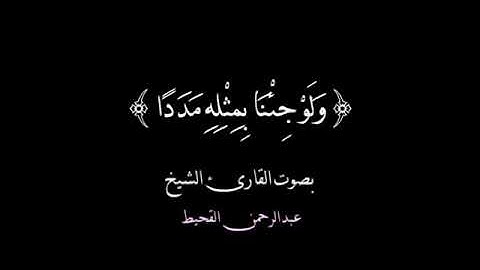 ﴿ وَلَوْ جِئْنَا بِمِثْلِهِ مَدَدًا ﴾
بصوت القارئ الشيخ
عبدالرحمن القحيط